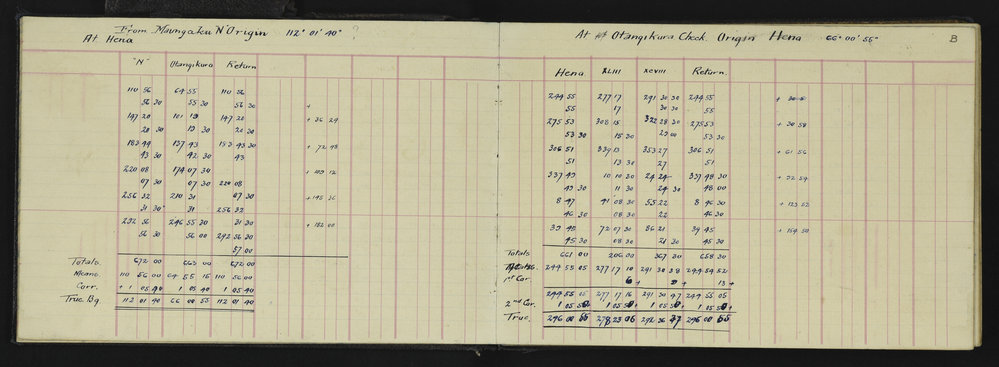 From Maungaku N Origin 112° 01' 40" ?
At Hena
"N" Otangikura Return
110 56 64 55 110 56
56 30 55 30 56 30 +
147 20 101 19 147 20 + 36 29
20 30 19 30 20 30
183 44 137 43 183 43 30 + 72 48
43 30 42 30 43
220 08 174 07 30 + 109 12
07 30 07 30 220 08
256 32 210 31 07 30 + 145 36
31 30 31 256 32
292 56 246 55 30 31 30 + 182 00
56 30 56 00 292 56 30
57 00
Totals 672 00 663 00 672 00
Means 110 56 00 64 55 15 110 56 00
Corr. + 1 05 40 1 05 40 1 05 40
True Bg 112 01 40 66 00 55 112 01 40
At Otangikura Check Origin Hena 66° 00' 55" B
Hena XLIII XCVIII Return
244 55 277 17 291 30 30 244 55
55 17 30 30 55
275 53 308 15 322 28 30 275 53 + 30 58
53 30 15 30 29 00 53 30
306 51 339 13 353 27 306 51 + 61 56
51 13 30 27 51
337 49 10 10 30 24 24 337 48 30 + 92 54
49 30 11 30 24 30 48 00
8 47 41 08 30 55 22 8 46 30 + 123 52
46 30 08 30 22 46 30
39 45 72 07 30 86 21 39 45 + 154 50
45 30 08 30 21 30 45 30
Totals 661 00 206 00 367 30 658 30
244 55 05 277 17 10 291 30 38 244 54 52
1st Cor. 6 + 9 + 13 +
244 55 05 277 17 16 291 30 47 244 55 05
2nd Cor. 1 05 50 1 05 50 + 1 05 50 + 1 05 50 +
True. 246 00 55 278 23 06 292 36 37 246 00 55